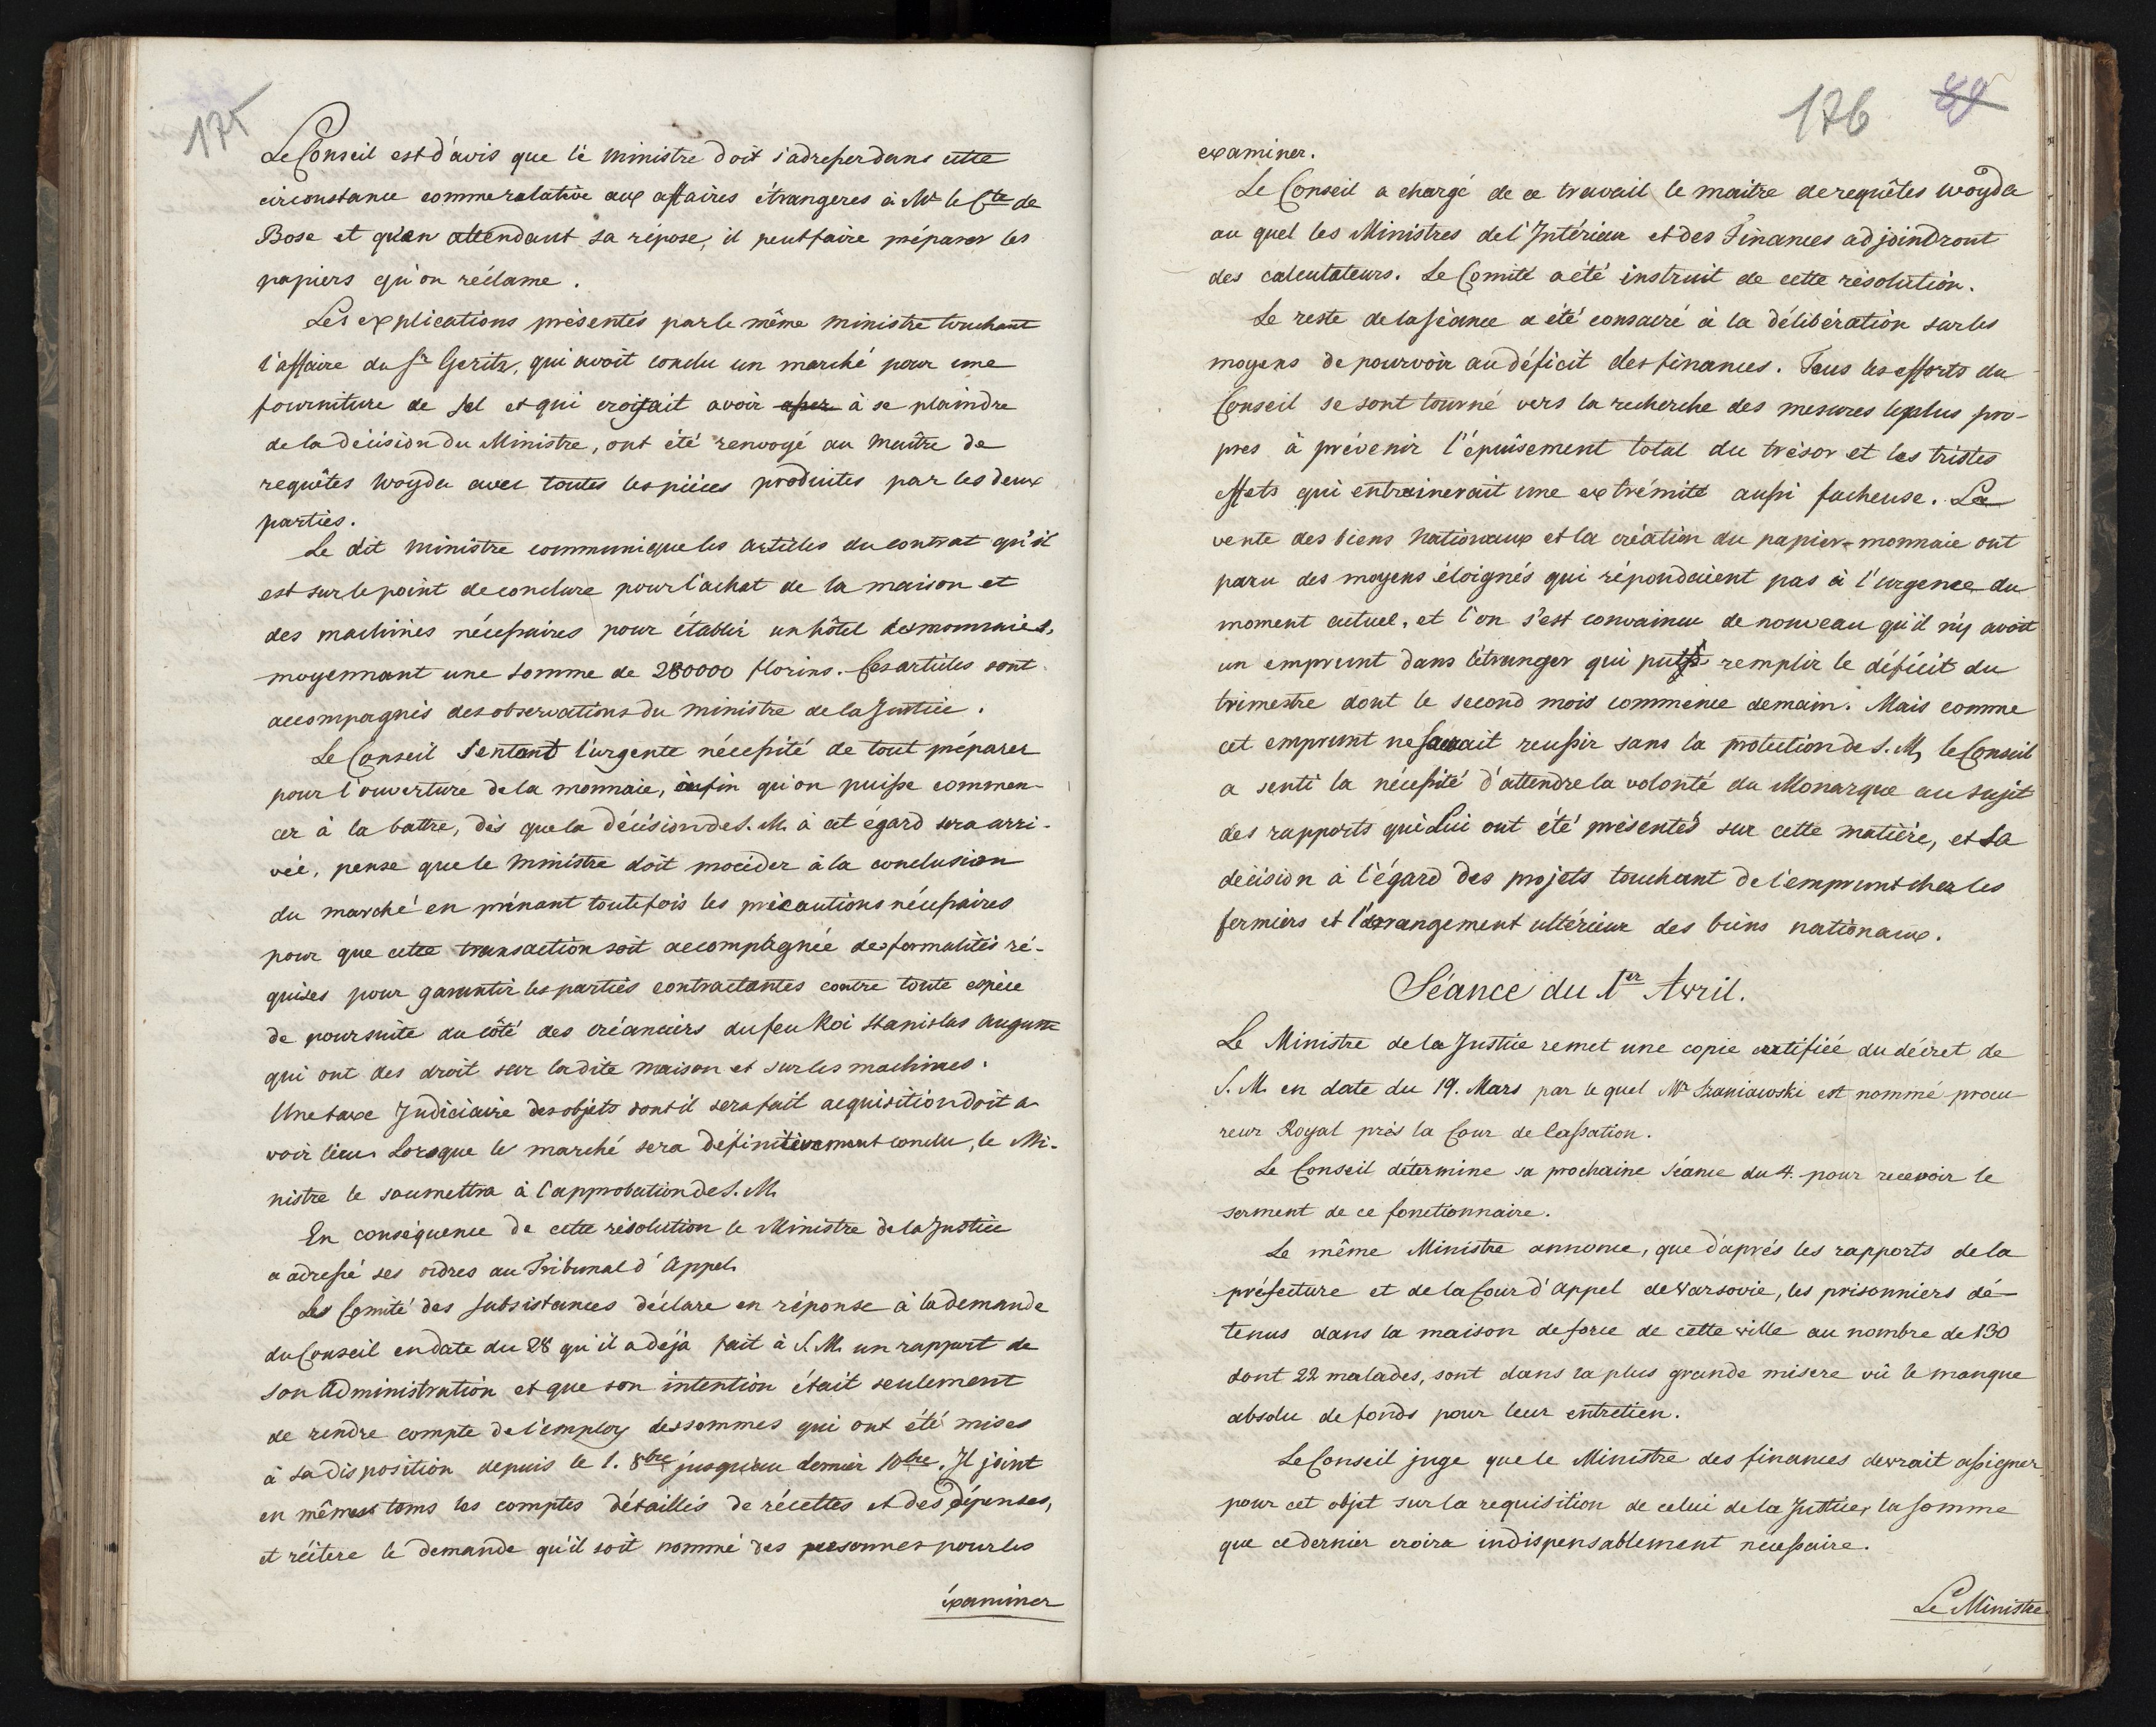 175
Le Conseil est d'avis que le ministre doit s'adresser dans cette
circonstance comme relative aux affaires étrangeres à Mr le Cte de
Bose et qu'en attendant sa répose, il peut faire préparer les
papiers qu'on réclame.
Les explications présentés par le même ministre touchant
l'affaire du Sr Geritz, qui avoit conclu un marché pour une
fourniture de sel et qui croisait avoir à se plaindre
de la décision du Ministre, ont été renvoyé au Maître de
requêtes Woyda avec toutes les piéces produites par les deux
parties.
Le dit ministre communique les articles du contrat qu'il
est sur le point de conclure pour l'achat de la maison et
des machines nécessaires pour établir un hôtel des monnaies,
moyennant une somme de 280000 florins. Ces articles sont
accompagnés des observations du ministre de la Justice.
Le Conseil sentant l'urgente nécessité de tout préparer
pour l'ouverture de la monnaie, afin qu'on puisse commen-
cer à la battre, dès que la décision de S. M. à cet égard sera arri-
vée, pense que le Ministre doit procéder à la conclusion
du marché en prénant toutefois les précautions nécessaires
pour que cette transaction soit accompagnée des formalités ré-
quises pour garantir les parties contractantes contre toute espèce
de poursuite du côté des créanciers du feu Roi Stanislas Auguste
qui ont des droit sur la dite maison et sur les machines.
Une taxe Judiciaire des objets dont il sera fait acquisition doit a-
voir lieu. Lorsque le marché sera définitivement conclu, le Mi-
nistre le soumettra à l'approbation de S. M.
En conséquence de cette résolution le Ministre de la Justice
a adressé ses ordres au Tribunal d'Appel.
Les Comité des subsistances déclare en réponse à la demande
du Conseil en date du 28 qu'il a déjà fait à S. M. un rapport de
son Administration et que son intention était seulement
de rendre compte de l'employ des sommes qui ont été mises
à sa disposition depuis le 1. 8bre jusqu'au dernier 10bre. Il joint
en mêmes tems les comptes détaillés de récettes et des dépenses,
et réitere le demande qu'il soit nommé des personnes pour les
éxaminer
176
examiner.
Le Conseil a chargé de ce travail le maitre de requêtes Woyda
au quel les Ministres de l'Intérieur et des Finances adjoindront
des calculateurs. Le Comité a été instruit de cette résolution.
Le reste de la séance a été consacré à la délibération sur les
moyens de pourvoir au déficit des finances. Tous les efforts du
Conseil se sont tourné vers la recherche des mesures les plus pro-
pres à prévenir l'épuisement total du trésor et les tristes
effets qui entrainerait une extrémité aussi facheuse. La
vente des biens nationaux et la création du papier-monnaie ont
paru des moyens éloignés qui répondaient pas à l'urgence du
moment actuel, et l'on s'est convaincu de nouveau qu'il n'y avoit
un emprunt dans l'étranger qui put remplir le déficit du
trimestre dont le second mois commence demain. Mais comme
cet emprunt ne saurait reussir sans la protection de S. M, le Conseil
a senti la nécessité d'attendre la volonté du Monarque au sujet
des rapports qui Lui ont été présentés sur cette matière, et Sa
décision à l'égard des projets touchant de l'emprunt chez les
fermiers et l'arrangement ultérieur des biens nationaux.
Séance du 1er Avril.
Le Ministre de la Justice remet une copie certifiée du décret de
S. M. en date du 19. Mars par le quel Mr Szaniawski est nommé procu
reur Royal près la Cour de Cassation.
Le Conseil détermine sa prochaine séance du 4. pour recevoir le
serment de ce fonctionnaire.
Le même Ministre annonce, que d'après les rapports de la
préfecture et de la Cour d'Appel de Varsovie, les prisonniers dé-
tenus dans la maison de force de cette ville au nombre de 130
dont 22 malades, sont dans la plus grande misere vû le manque
absolu de fonds pour leur entretien.
Le Conseil juge que le Ministre des finances devrait assigner
pour cet objet sur la requisition de celui de la Justice, la somme
que ce dernier croira indispensablement necessaire.
Le Ministre